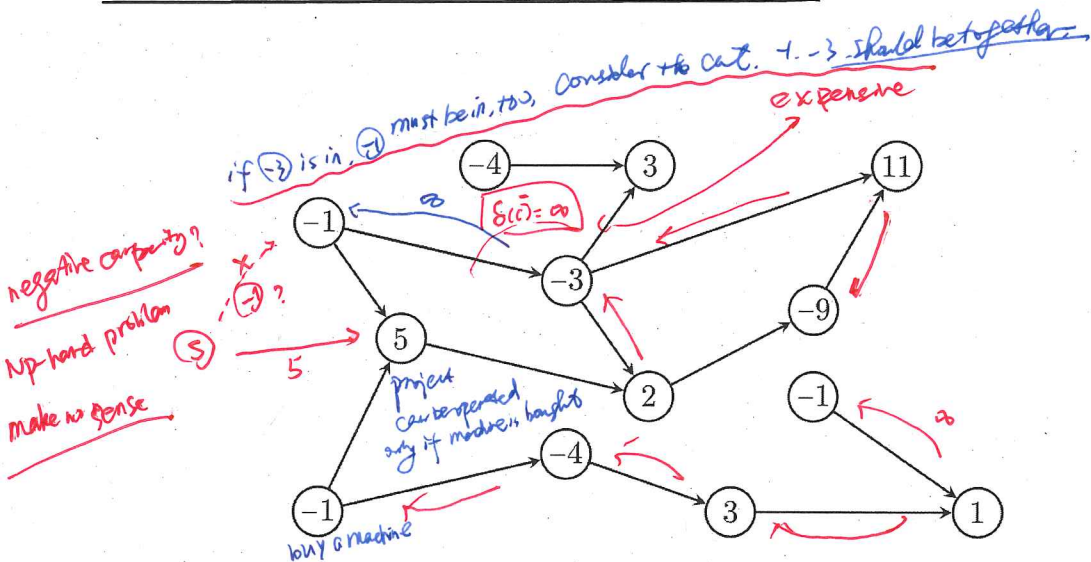 if -3 is in, -1 must be in, too, consider the cut. + -3 should be together
expensive
-4
3
11
∞
δ(c̄)=∞
-1
negative capacity?
x
-3
-1?
-9
NP-hard problem
S
5
5
make no sense
project
can be operated
only if machine is bought
2
-1
∞
-4
-1
3
1
buy a machine